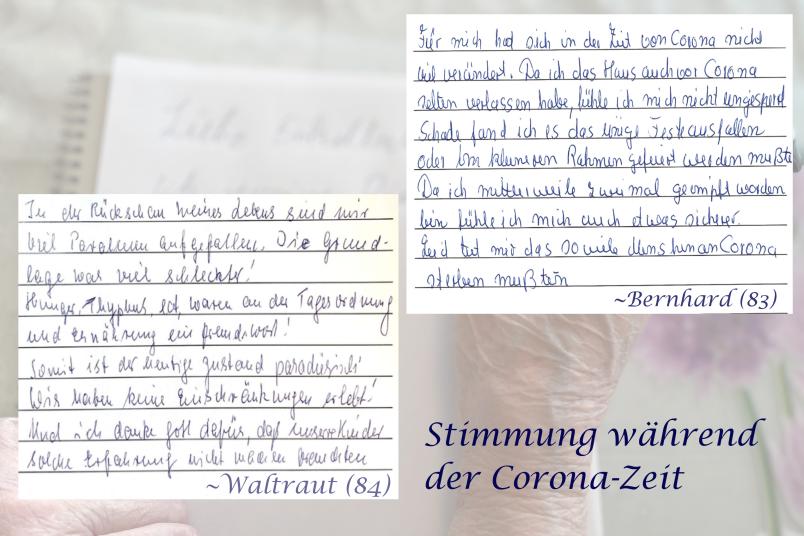 Für mich hat sich in der Zeit von Corona nicht
viel verändert. Da ich das Haus auch vor Corona
selten verlassen habe, fühle ich mich nicht eingesperrt
Schade fand ich es das einige Feste ausfallen
oder im kleineren Rahmen gefeiert werden mußte
Da ich mittlerweile zweimal geimpft worden
bin fühle ich mich auch etwas sichrer.
Leid tut mir das so viele Corona
sterben mußten
~Bernhard (83)
In der Rückschau meines Lebens sind mir
viel aufgefallen. Die Grund-
lage war viel schlechter!
Hunger, Thyphus, ect, waren an der Tagesordnung
und Ernährung ein Fremdwort!
Somit ist der heutige Zustand paradisisch!
Wir haben keine Einschränkungen erlebt!
Und ich danke Gott dafür, daß unsere Kinder
solche Erfahrung nicht machen brauchten
~Waltraut (84)
Stimmung während
der Corona-Zeit